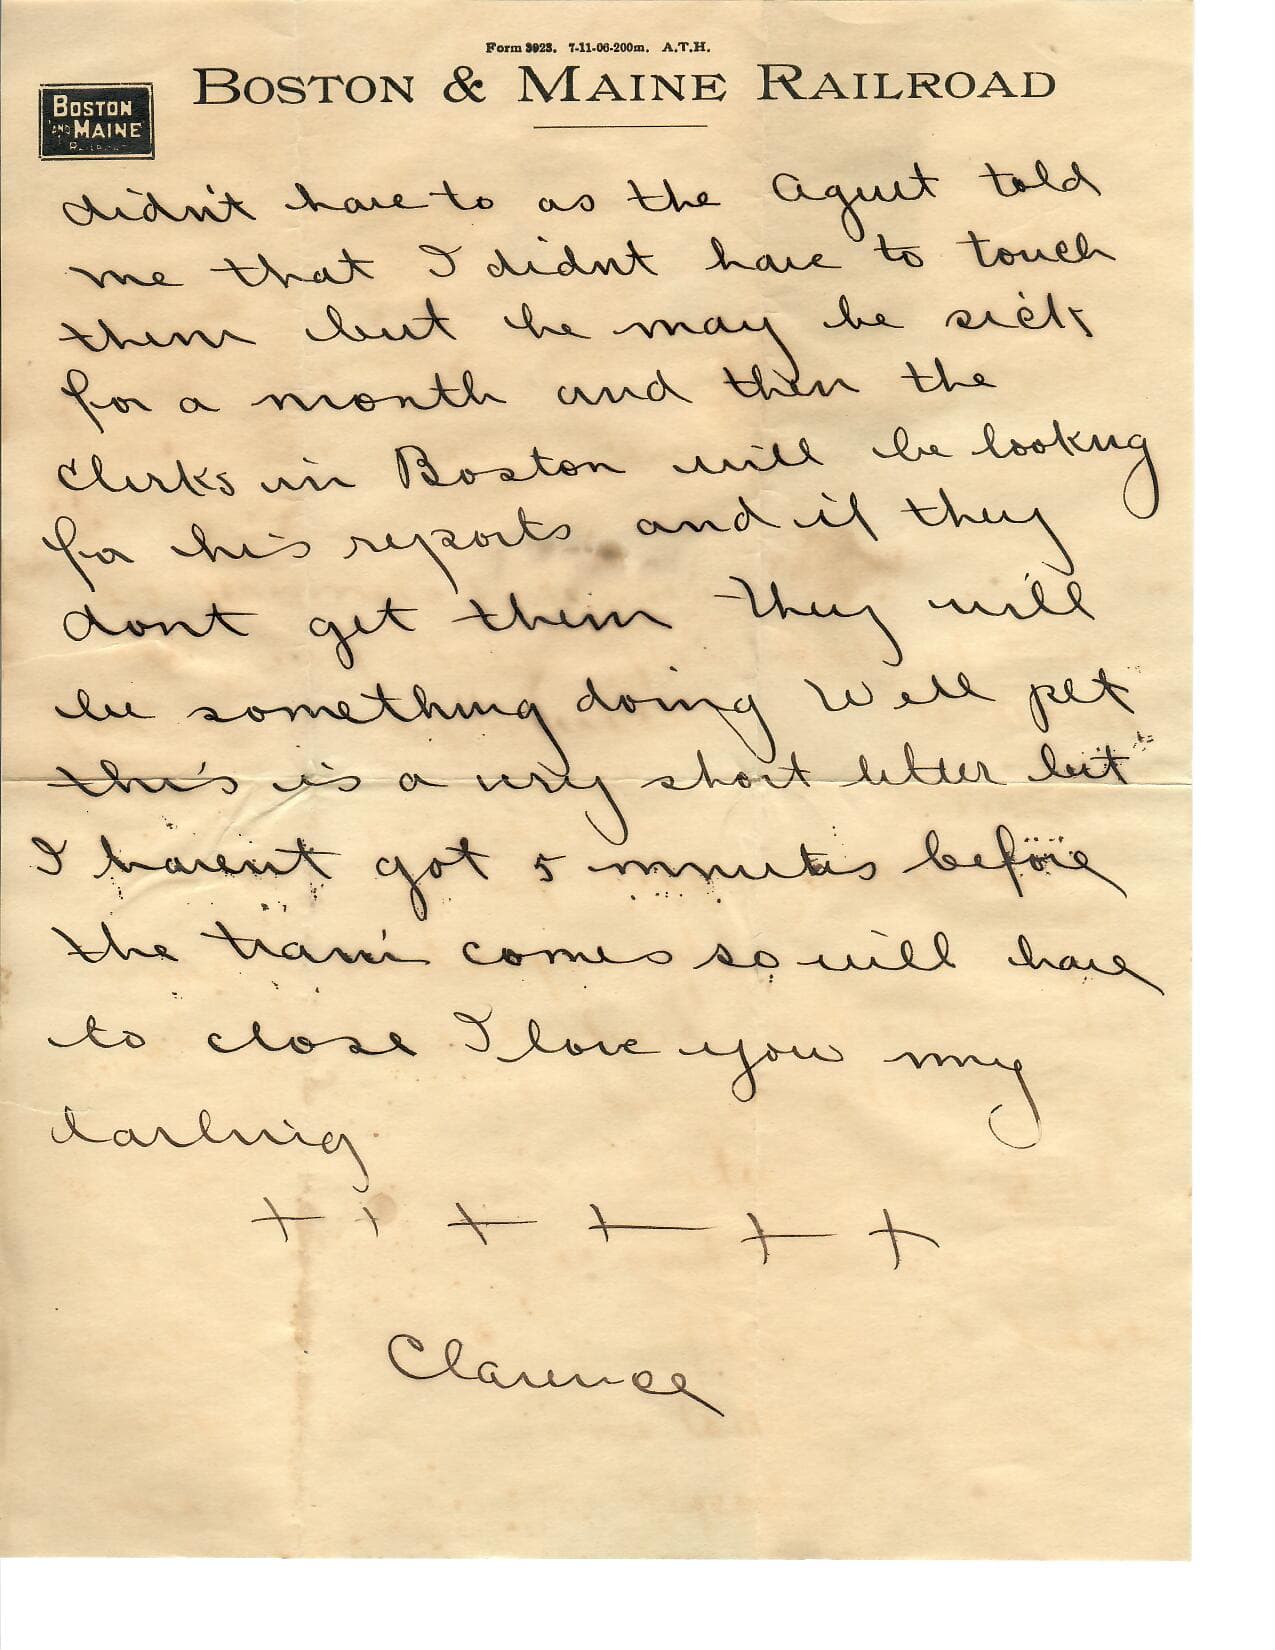 Form 3923. 7-11-06-200m. A.T.H.
BOSTON & MAINE RAILROAD
BOSTON
AND MAINE
RAILROAD
didn't have to as the Agent told
me that I didnt have to touch
them but he may be sick
for a month and then the
clerks in Boston will be looking
for his reports and if they
dont get them they will
be something doing Well pet
this is a very short letter but
I havent got 5 minutes before
the train comes so will have
to close I love you my
darling.
+ + + + + +
Clarence